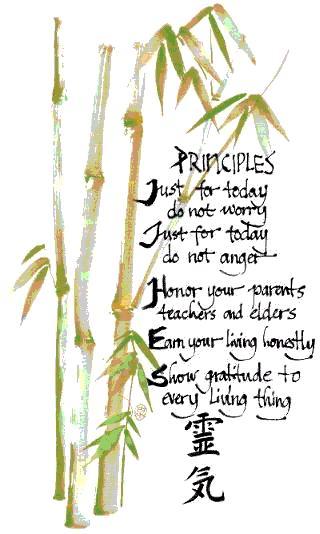 PRINCIPLES
Just for today
do not worry
Just for today
do not anger
Honor your parents
teachers and elders
Earn your living honestly
Show gratitude to
every living thing
靈
気